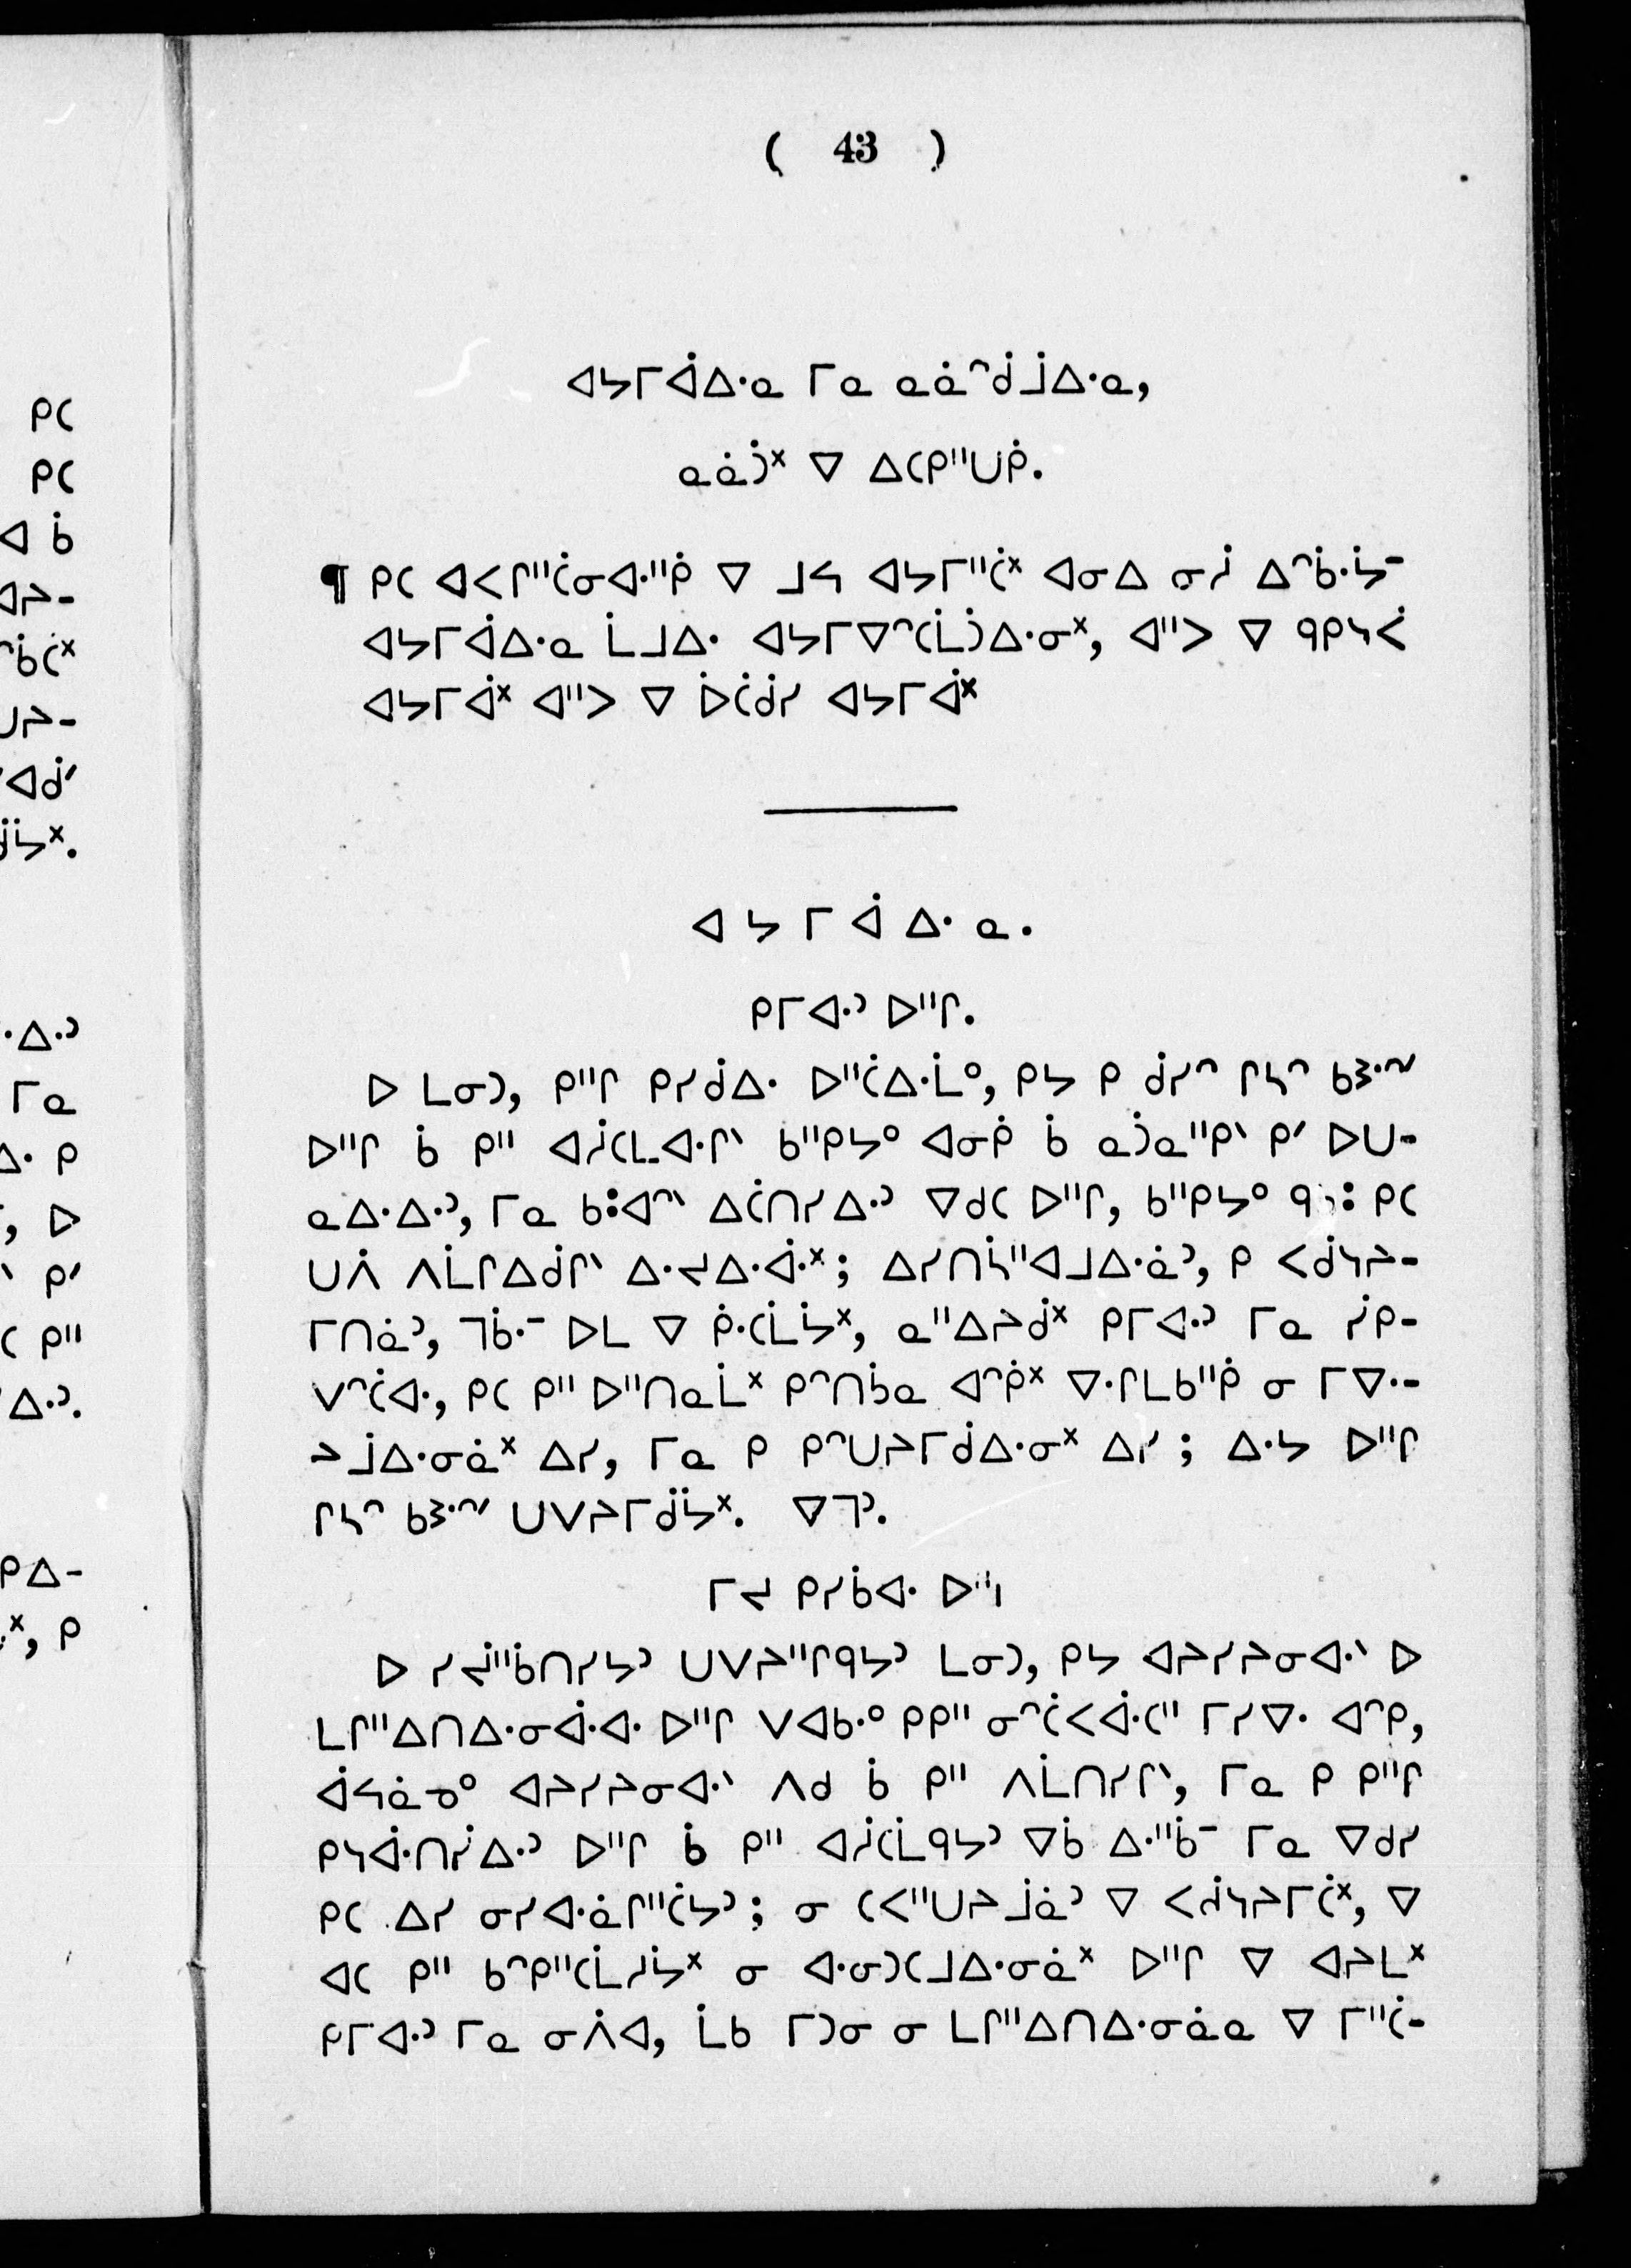 ( 43 )
ᐊᔭᒥᐋᐃᐧᓇ ᒥᓇ ᓇᓈᐢᑰᒨᐃᐧᓇ,
ᓇᓈᑑᕽ ᐁ ᐃᑕᑭᐦᑌᑮ.
¶ ᑭᑕ ᐊᐸᒋᐦᑖᓂᐊᐧᐦᑮ ᐁ ᒧᓴ ᐊᔭᒥᐦᑖᕽ ᐊᓂᐃ ᓂᓲ ᐃᐢᑳᐧᔮᐨ
ᐊᔭᒥᐋᐃᐧᓇ ᒫᒧᐃᐧ ᐊᔭᒥᐁᐢᑕᒫᑑᐃᐧᓂᕽ, ᐊᐦᐳ ᐁ ᑫᑭᓭᐹ
ᐊᔭᒥᐋᕽ ᐊᐦᐳ ᐁ ᐆᑖᑰᓯ ᐊᔭᒥᐋᕽ
ᐊ ᔭ ᒥ ᐋ ᐃᐧ ᓇ.
ᑭᒥᐊᐧᐣ ᐅᐦᒋ.
ᐅ ᒪᓂᑐ, ᑭᐦᒋ ᑭᓯᑰᐃᐧ ᐅᐦᑖᐃᐧᒫᐤ, ᑭᔭ ᑭ ᑰᓯᐢ ᒋᓴᐢ
ᐅᐦᒋ ᑳ ᑭᐦ ᐊᓲᑕᒪᐊᐧᒋᐠ ᑲᐦᑭᔭᐤ ᐊᓂᑮ ᑳ ᓇᑑᓇᐦᑭᐠ ᑭᐟ ᐅᑌ-
ᓇᐃᐧᐃᐧᐣ, ᒥᓇ ᐃᑖᑎᓯᐃᐧᐣ ᐁᑯᑕ ᐅᐦᒋ, ᑲᐦᑭᔭᐤ ᑭᑕ
ᑌᐲ ᐱᒫᒋᐃᑰᒋᐠ ᐃᐧᔪᐃᐧᐋᐧᕽ; ᐃᓯᑎᓵᐦᐊᒧᐃᐧᓈᐣ, ᑭ ᐸᑰᓭᔨ-
ᒥᑎᓈᐣ, ᒣᑳᐧᐨ ᐅᒪ ᐁ ᑮᐧᑕᒫᔭᕽ, ᓇᐦᐃᔨᑰᕽ ᑭᒥᐊᐧᐣ ᒥᓇ ᓰᑭ-
ᐯᐢᑖᐊᐧ, ᑭᑕ ᑭᐦ ᐅᐦᑎᓇᒫᕽ ᑭᐢᑎᑳᓇ ᐊᐢᑮᕽ ᐁᐧᒋᒪᑲᐦᑮ ᓂ ᒥᐁᐧ-
ᔨᒨᐃᐧᓂᓈᕽ ᐃᓯ, ᒥᓇ ᑭ ᑭᐢᑌᔨᒥᑰᐃᐧᓂᕽ ᐃᓯ; ᐃᐧᔭ ᐅᐦᒋ
ᒥᔪ ᑭᓯᑳᐊᐧ
ᐅ ᓯᔫᐦᑳᑎᓯᔭᐣ ᑌᐯᔨᐦᒋᑫᔭᐣ ᒪᓂᑐ, ᑭᔭ ᐊᔨᓯᔨᓂᐊᐧᐠ ᐅ
ᒪᒋᐦᐃᑎᐃᐧᓂᐋᐧᐊᐧ ᐅᐦᒋ ᐯᐊᑲᐧᐤ ᑭᑭᐦ ᓂᐢᑖᐸᐋᐧᑕᐦ ᒥᓯᐁᐧ ᐊᐢᑭ,
ᐋᔭᓈᓀᐤ ᐊᔨᓯᔨᓂᐊᐧᐠ ᐱᑯ ᑳ ᑭᐦ ᐱᒫᑎᓯᒋᐠ, ᒥᓇ ᑭ ᑭᐦᒋ
ᑭᓭᐋᐧᑎᓰᐃᐧᐣ ᐅᐦᒋ ᑳ ᑭᐦ ᐊᓲᑕᒫᑫᔭᐣ ᐁᑳ ᐃᐧᐦᑳᐨ ᒥᓇ ᐁᑯᓯ
ᑭᑕ ᐃᓯ ᓂᓯᐊᐧᓈᒋᐦᑖᔭᐣ; ᓂ ᑕᐸᐦᑌᔨᒨᓈᐣ ᐁ ᐸᑰᓭᔨᒥᑖᕽ, ᐁ
ᐊᑕ ᑭᐦ ᑲᐢᑭᐦᑕᒫᓱᔮᕽ ᓂ ᐊᐧᓂᑐᑕᒧᐃᐧᓂᓈᕽ ᐅᐦᒋ ᐁ ᐊᔨᒪᕽ
ᑭᒥᐊᐧᐣ ᒥᓇ ᓂᐲᐊ, ᒫᑲ ᒥᑐᓂ ᓂ ᒪᒋᐦᐃᑎᐃᐧᓂᓈᓇ ᐁ ᒥᐦᑖ-